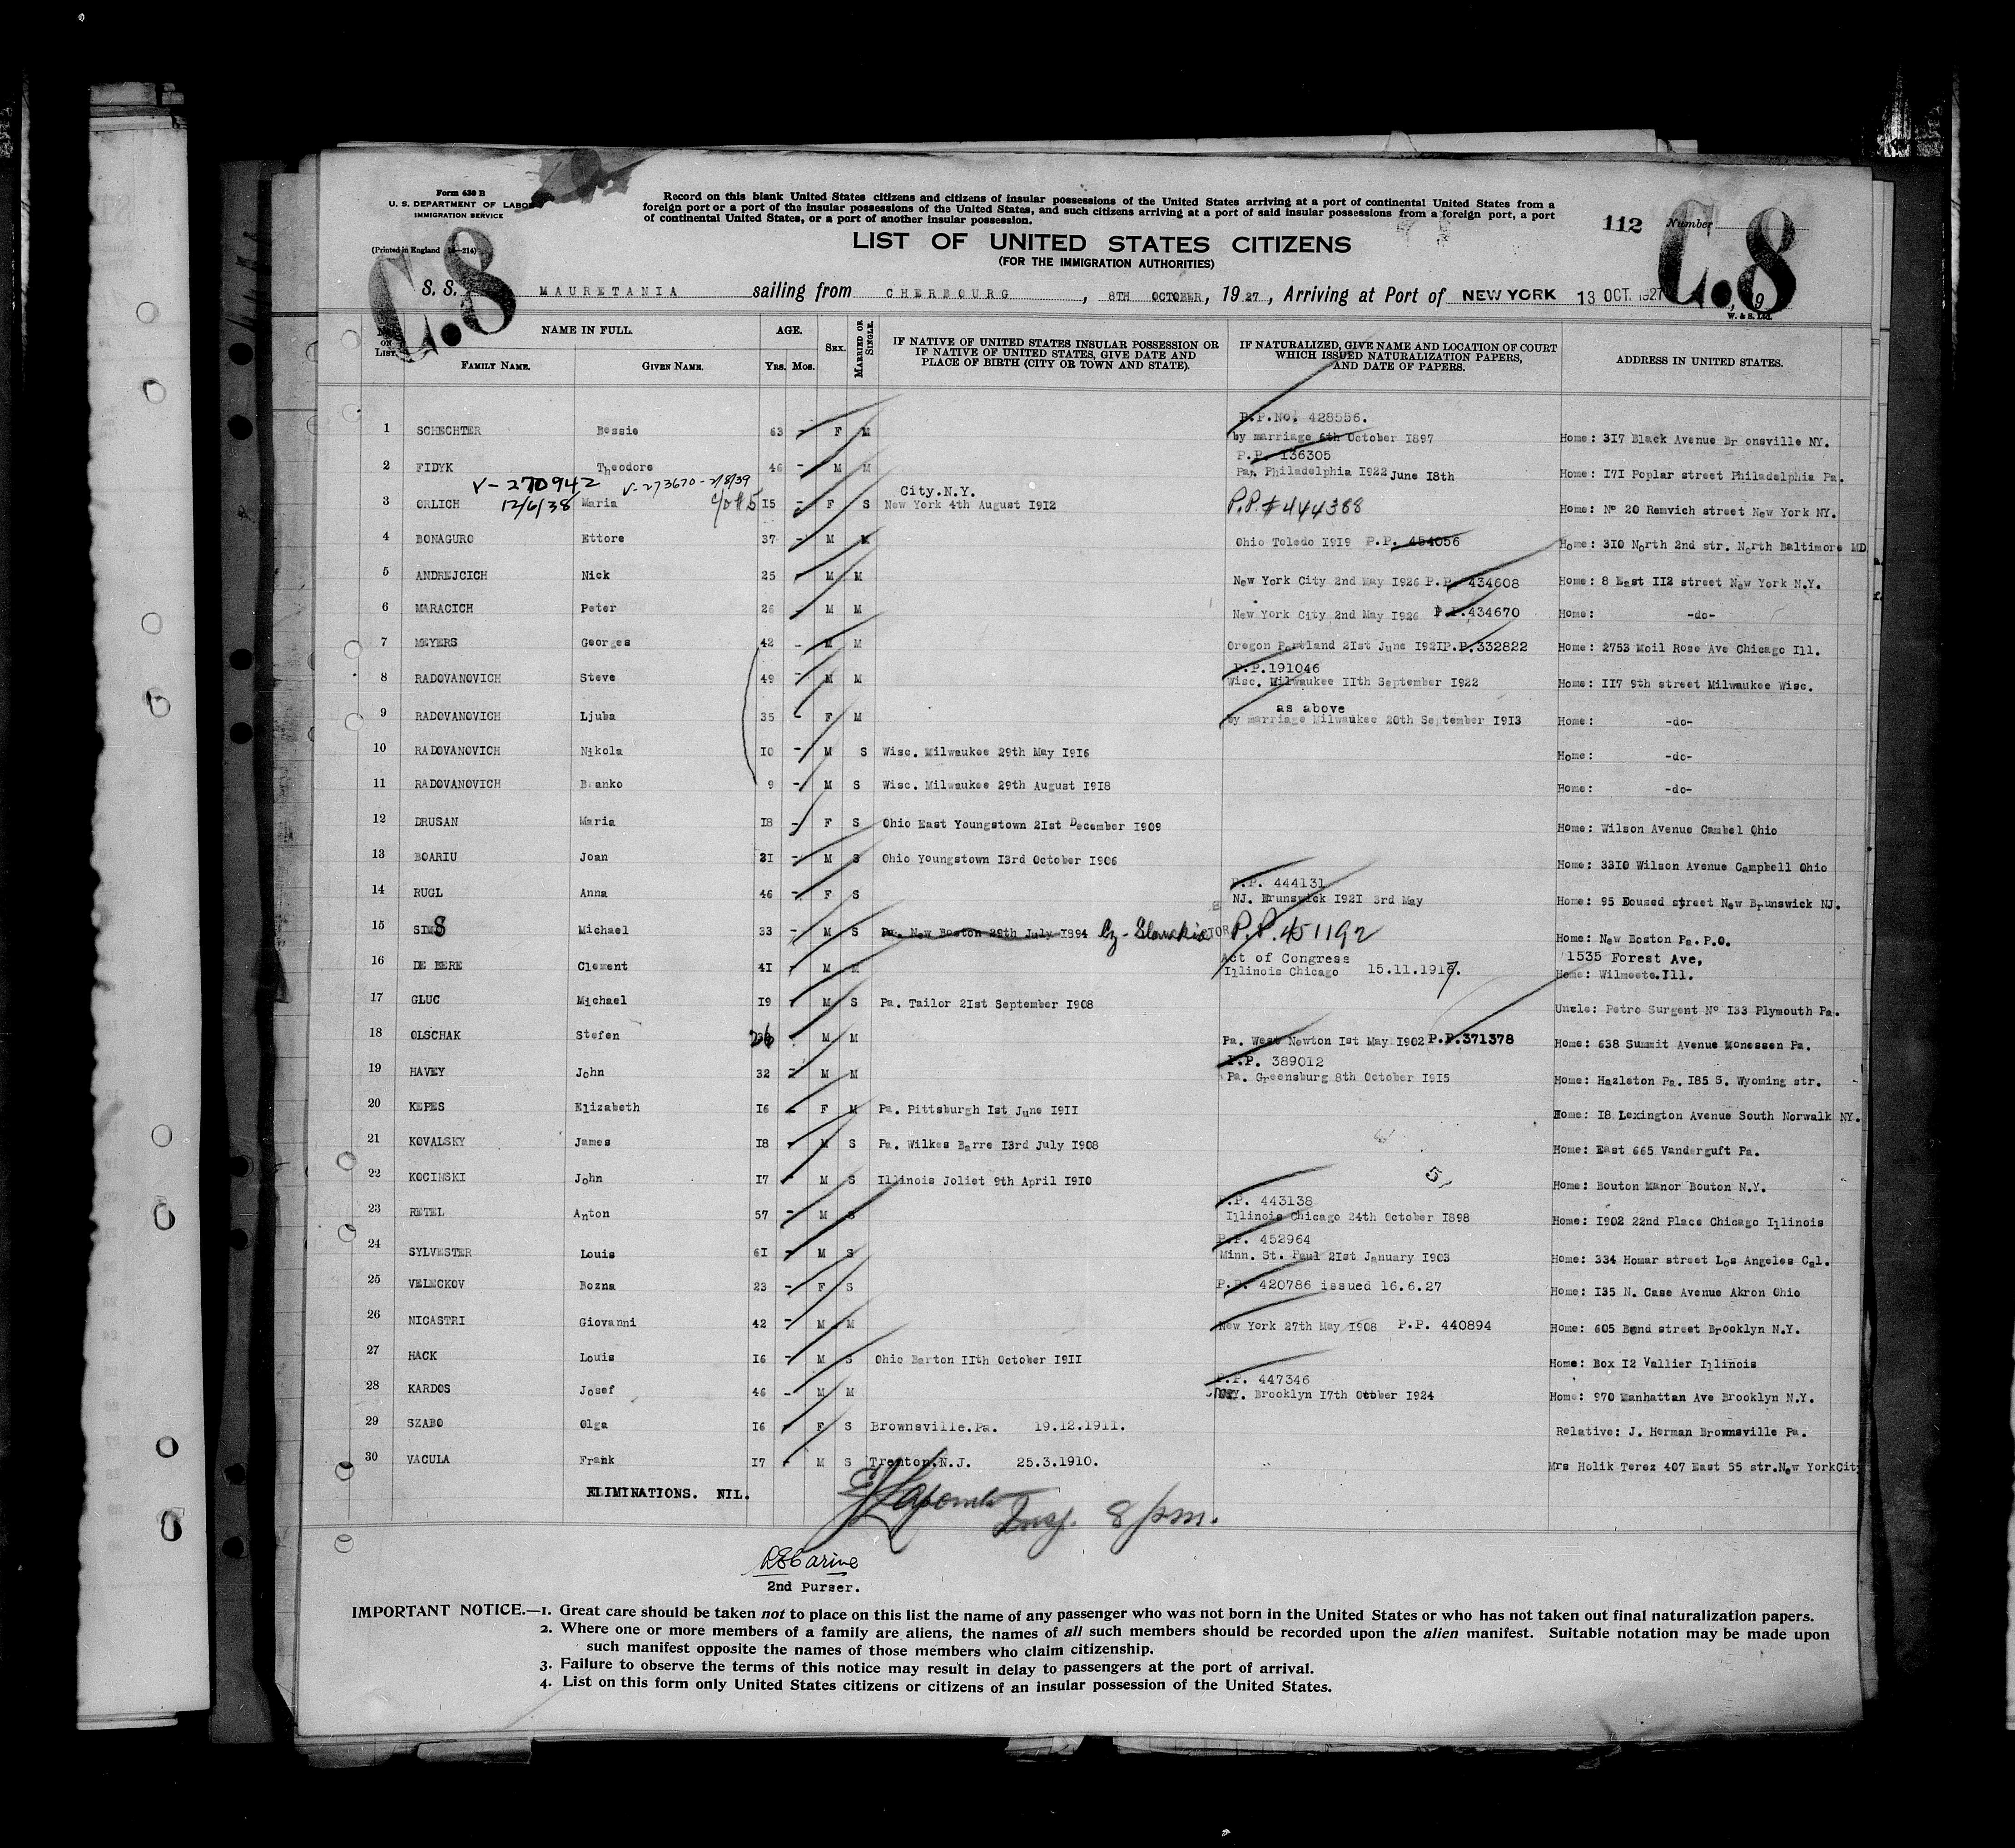 Form 630 B
U. S. DEPARTMENT OF LABOR
IMMIGRATION SERVICE
(Printed in England 14—214)
Record on this blank United States citizens and citizens of insular possessions of the United States arriving at a port of continental United States from a
foreign port or a port of the insular possessions of the United States, and such citizens arriving at a port of said insular possessions from a foreign port, a port
of continental United States, or a port of another insular possession.
112 Number
C.8 C.8
LIST OF UNITED STATES CITIZENS
(FOR THE IMMIGRATION AUTHORITIES)
S. S. MAURETANIA sailing from CHERBOURG, 8TH OCTOBER, 1927, Arriving at Port of NEW YORK 13 OCT. 1927
W. & S. Ltd.
No. ON LIST. NAME IN FULL. FAMILY NAME. GIVEN NAME. AGE. Yrs. Mos. SEX. MARRIED OR SINGLE. IF NATIVE OF UNITED STATES INSULAR POSSESSION OR IF NATIVE OF UNITED STATES, GIVE DATE AND PLACE OF BIRTH (CITY OR TOWN AND STATE). IF NATURALIZED, GIVE NAME AND LOCATION OF COURT WHICH ISSUED NATURALIZATION PAPERS, AND DATE OF PAPERS. ADDRESS IN UNITED STATES.
P.P.No. 428556.
1 SCHECHTER Bessie 63 - F M by marriage 6th October 1897 Home: 317 Black Avenue Br onsville NY.
P.P. 136305
2 FIDYK Theodore 46 - M M Pa. Philadelphia 1922 June 18th Home: 171 Poplar street Philadelphia Pa.
V-270942 V-273670-2/8/39
City.N.Y.
3 ORLICH 12/6/38 Maria 15 - F S New York 4th August 1912 P.P.#444388 Home: No 20 Remvich street New York NY.
4 BONAGURO Ettore 37 - M M Ohio Toledo 1919 P.P. 454056 Home: 310 North 2nd str. North Baltimore MD
5 ANDREJCICH Nick 25 - M M New York City 2nd May 1926 P.P. 434608 Home: 8 East 112 street New York N.Y.
6 MARACICH Peter 26 - M M New York City 2nd May 1926 P.P.434670 Home: -do-
7 MEYERS Georges 42 - M M Oregon Portland 21st June 1921P.P.332822 Home: 2753 Moil Rose Ave Chicago Ill.
P.P.191046
8 RADOVANOVICH Steve 49 - M M Wisc. Milwaukee 11th September 1922 Home: 117 9th street Milwaukee Wisc.
as above
9 RADOVANOVICH Ljuba 35 - F M by marriage Milwaukee 20th September 1913 Home: -do-
10 RADOVANOVICH Nikola 10 - M S Wisc. Milwaukee 29th May 1916 Home: -do-
11 RADOVANOVICH Branko 9 - M S Wisc. Milwaukee 29th August 1918 Home: -do-
12 DRUSAN Maria 18 - F S Ohio East Youngstown 21st December 1909 Home: Wilson Avenue Cambel Ohio
13 BOARIU Joan 21 - M S Ohio Youngstown 13rd October 1906 Home: 3310 Wilson Avenue Campbell Ohio
P.P. 444131
14 RUGL Anna 46 - F S NJ. Brunswick 1921 3rd May Home: 95 Doused street New Brunswick NJ.
15 Michael 33 - M S Pa. New Boston 29th July 1894 Cz-Slovkia P.P.451192 Home: New Boston Pa. P.O.
Act of Congress 1535 Forest Ave,
16 DE BERE Clement 41 - M M Illinois Chicago 15.11.1917. Home: Wilmeete.Ill.
17 GLUC Michael 19 - M S Pa. Tailor 21st September 1908 Uncle: Petro Surgent No 133 Plymouth Pa.
18 OLSCHAK Stefen 26 M M Pa. West Newton 1st May 1902 P.P.371378 Home: 638 Summit Avenue Monessen Pa.
P.P. 389012
19 HAVEY John 32 - M M Pa. Greensburg 8th October 1915 Home: Hazleton Pa. 185 S. Wyoming str.
20 KEPES Elizabeth 16 - F M Pa. Pittsburgh 1st June 1911 Home: 18 Lexington Avenue South Norwalk NY.
21 KOVALSKY James 18 - M S Pa. Wilkes Barre 13rd July 1908 Home: East 665 Vanderguft Pa.
22 KOCINSKI John 17 - M S Illinois Joliet 9th April 1910 5 Home: Bouton Manor Bouton N.Y.
P.P. 443138
23 RETEL Anton 57 - M S Illinois Chicago 24th October 1898 Home: 1902 22nd Place Chicago Illinois
P.P. 452964
24 SYLVESTER Louis 61 - M S Minn. St. Paul 21st January 1903 Home: 334 Homar street Los Angeles Cal.
25 VELECKOV Bozna 23 - F S P.P. 420786 issued 16.6.27 Home: 135 N. Case Avenue Akron Ohio
26 NICASTRI Giovanni 42 - M M New York 27th May 1908 P.P. 440894 Home: 605 Bond street Brooklyn N.Y.
27 HACK Louis 16 - M S Ohio Barton 11th October 1911 Home: Box 12 Vallier Illinois
P.P. 447346
28 KARDOS Josef 46 - M M Brooklyn 17th Octber 1924 Home: 970 Manhattan Ave Brooklyn N.Y.
29 SZABO Olga 16 - F S Brownsville.Pa. 19.12.1911. Relative: J. Herman Brownsville Pa.
30 VACULA Frank 17 - M S Trenton.N.J. 25.3.1910. Mrs Holik Terez 407 East 55 str.New YorkCity
ELIMINATIONS. NIL.
Insp. 8 pm.
2nd Purser.
IMPORTANT NOTICE.—1. Great care should be taken not to place on this list the name of any passenger who was not born in the United States or who has not taken out final naturalization papers.
2. Where one or more members of a family are aliens, the names of all such members should be recorded upon the alien manifest. Suitable notation may be made upon
such manifest opposite the names of those members who claim citizenship.
3. Failure to observe the terms of this notice may result in delay to passengers at the port of arrival.
4. List on this form only United States citizens or citizens of an insular possession of the United States.